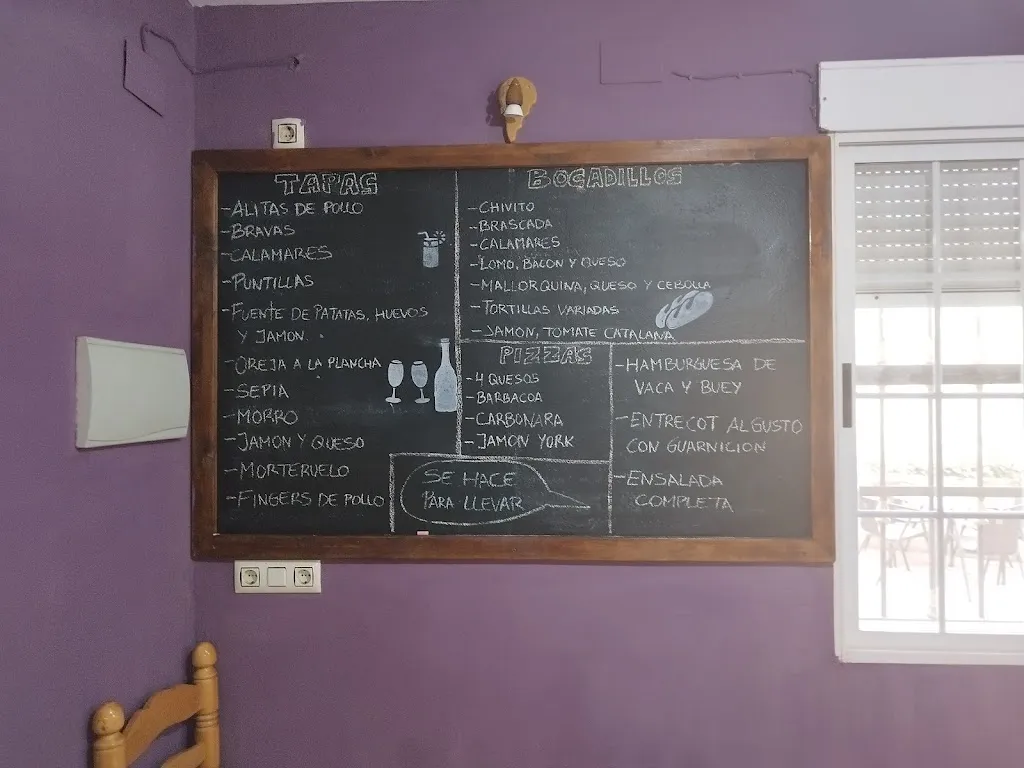 TAPAS
-ALITAS DE POLLO
-BRAVAS
-CALAMARES
-PUNTILLAS
-FUENTE DE PATATAS, HUEVOS
Y JAMON.
-OREJA A LA PLANCHA
-SEPIA
-MORRO
-JAMON Y QUESO
-MORTERUELO
-FINGERS DE POLLO
BOCADILLOS
-CHIVITO
-BRASCADA
-CALAMARES
-LOMO, BACON Y QUESO
-MALLORQUINA, QUESO Y CEBOLLA
-TORTILLAS VARIADAS
-JAMON, TOMATE CATALANA
PIZZAS
-4 QUESOS
-BARBACOA
-CARBONARA
-JAMON YORK
-HAMBURGUESA DE
VACA Y BUEY
-ENTRECOT AL GUSTO
CON GUARNICION
-ENSALADA
COMPLETA
SE HACE
PARA LLEVAR